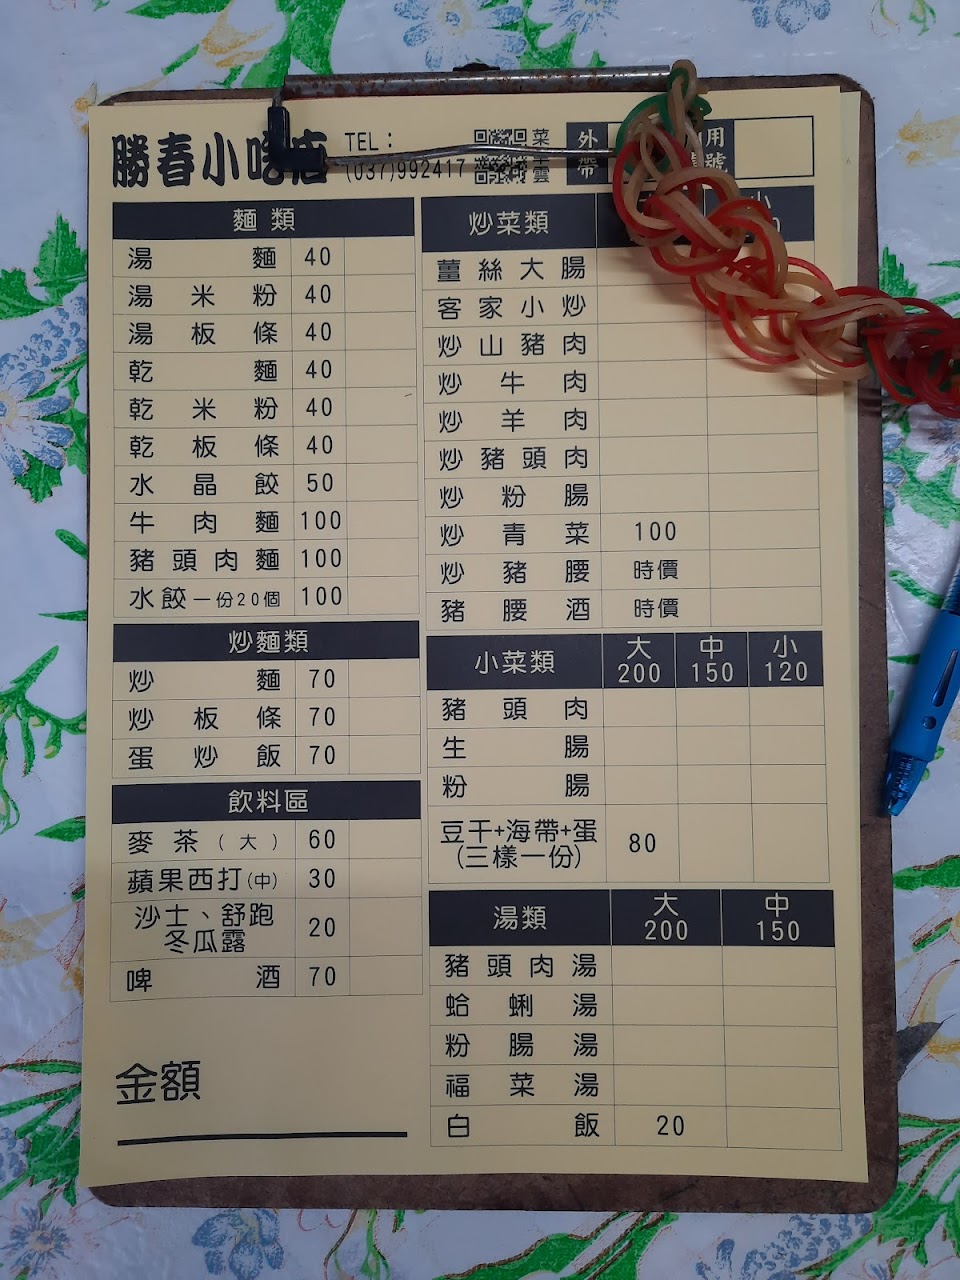 勝春小吃店
TEL：
(037)992417
菜單
外帶
內用
號
麵類
湯麵 40
湯米粉 40
湯板條 40
乾麵 40
乾米粉 40
乾板條 40
水晶餃 50
牛肉麵 100
豬頭肉麵 100
水餃一份20個 100
炒麵類
炒麵 70
炒板條 70
蛋炒飯 70
飲料區
麥茶(大) 60
蘋果西打(中) 30
沙士、舒跑
冬瓜露 20
啤酒 70
金額
炒菜類 小
薑絲大腸
客家小炒
炒山豬肉
炒牛肉
炒羊肉
炒豬頭肉
炒粉腸
炒青菜 100
炒豬腰 時價
豬腰酒 時價
小菜類 大 200 中 150 小 120
豬頭肉
生腸
粉腸
豆干+海帶+蛋
(三樣一份) 80
湯類 大 200 中 150
豬頭肉湯
蛤蜊湯
粉腸湯
福菜湯
白飯 20